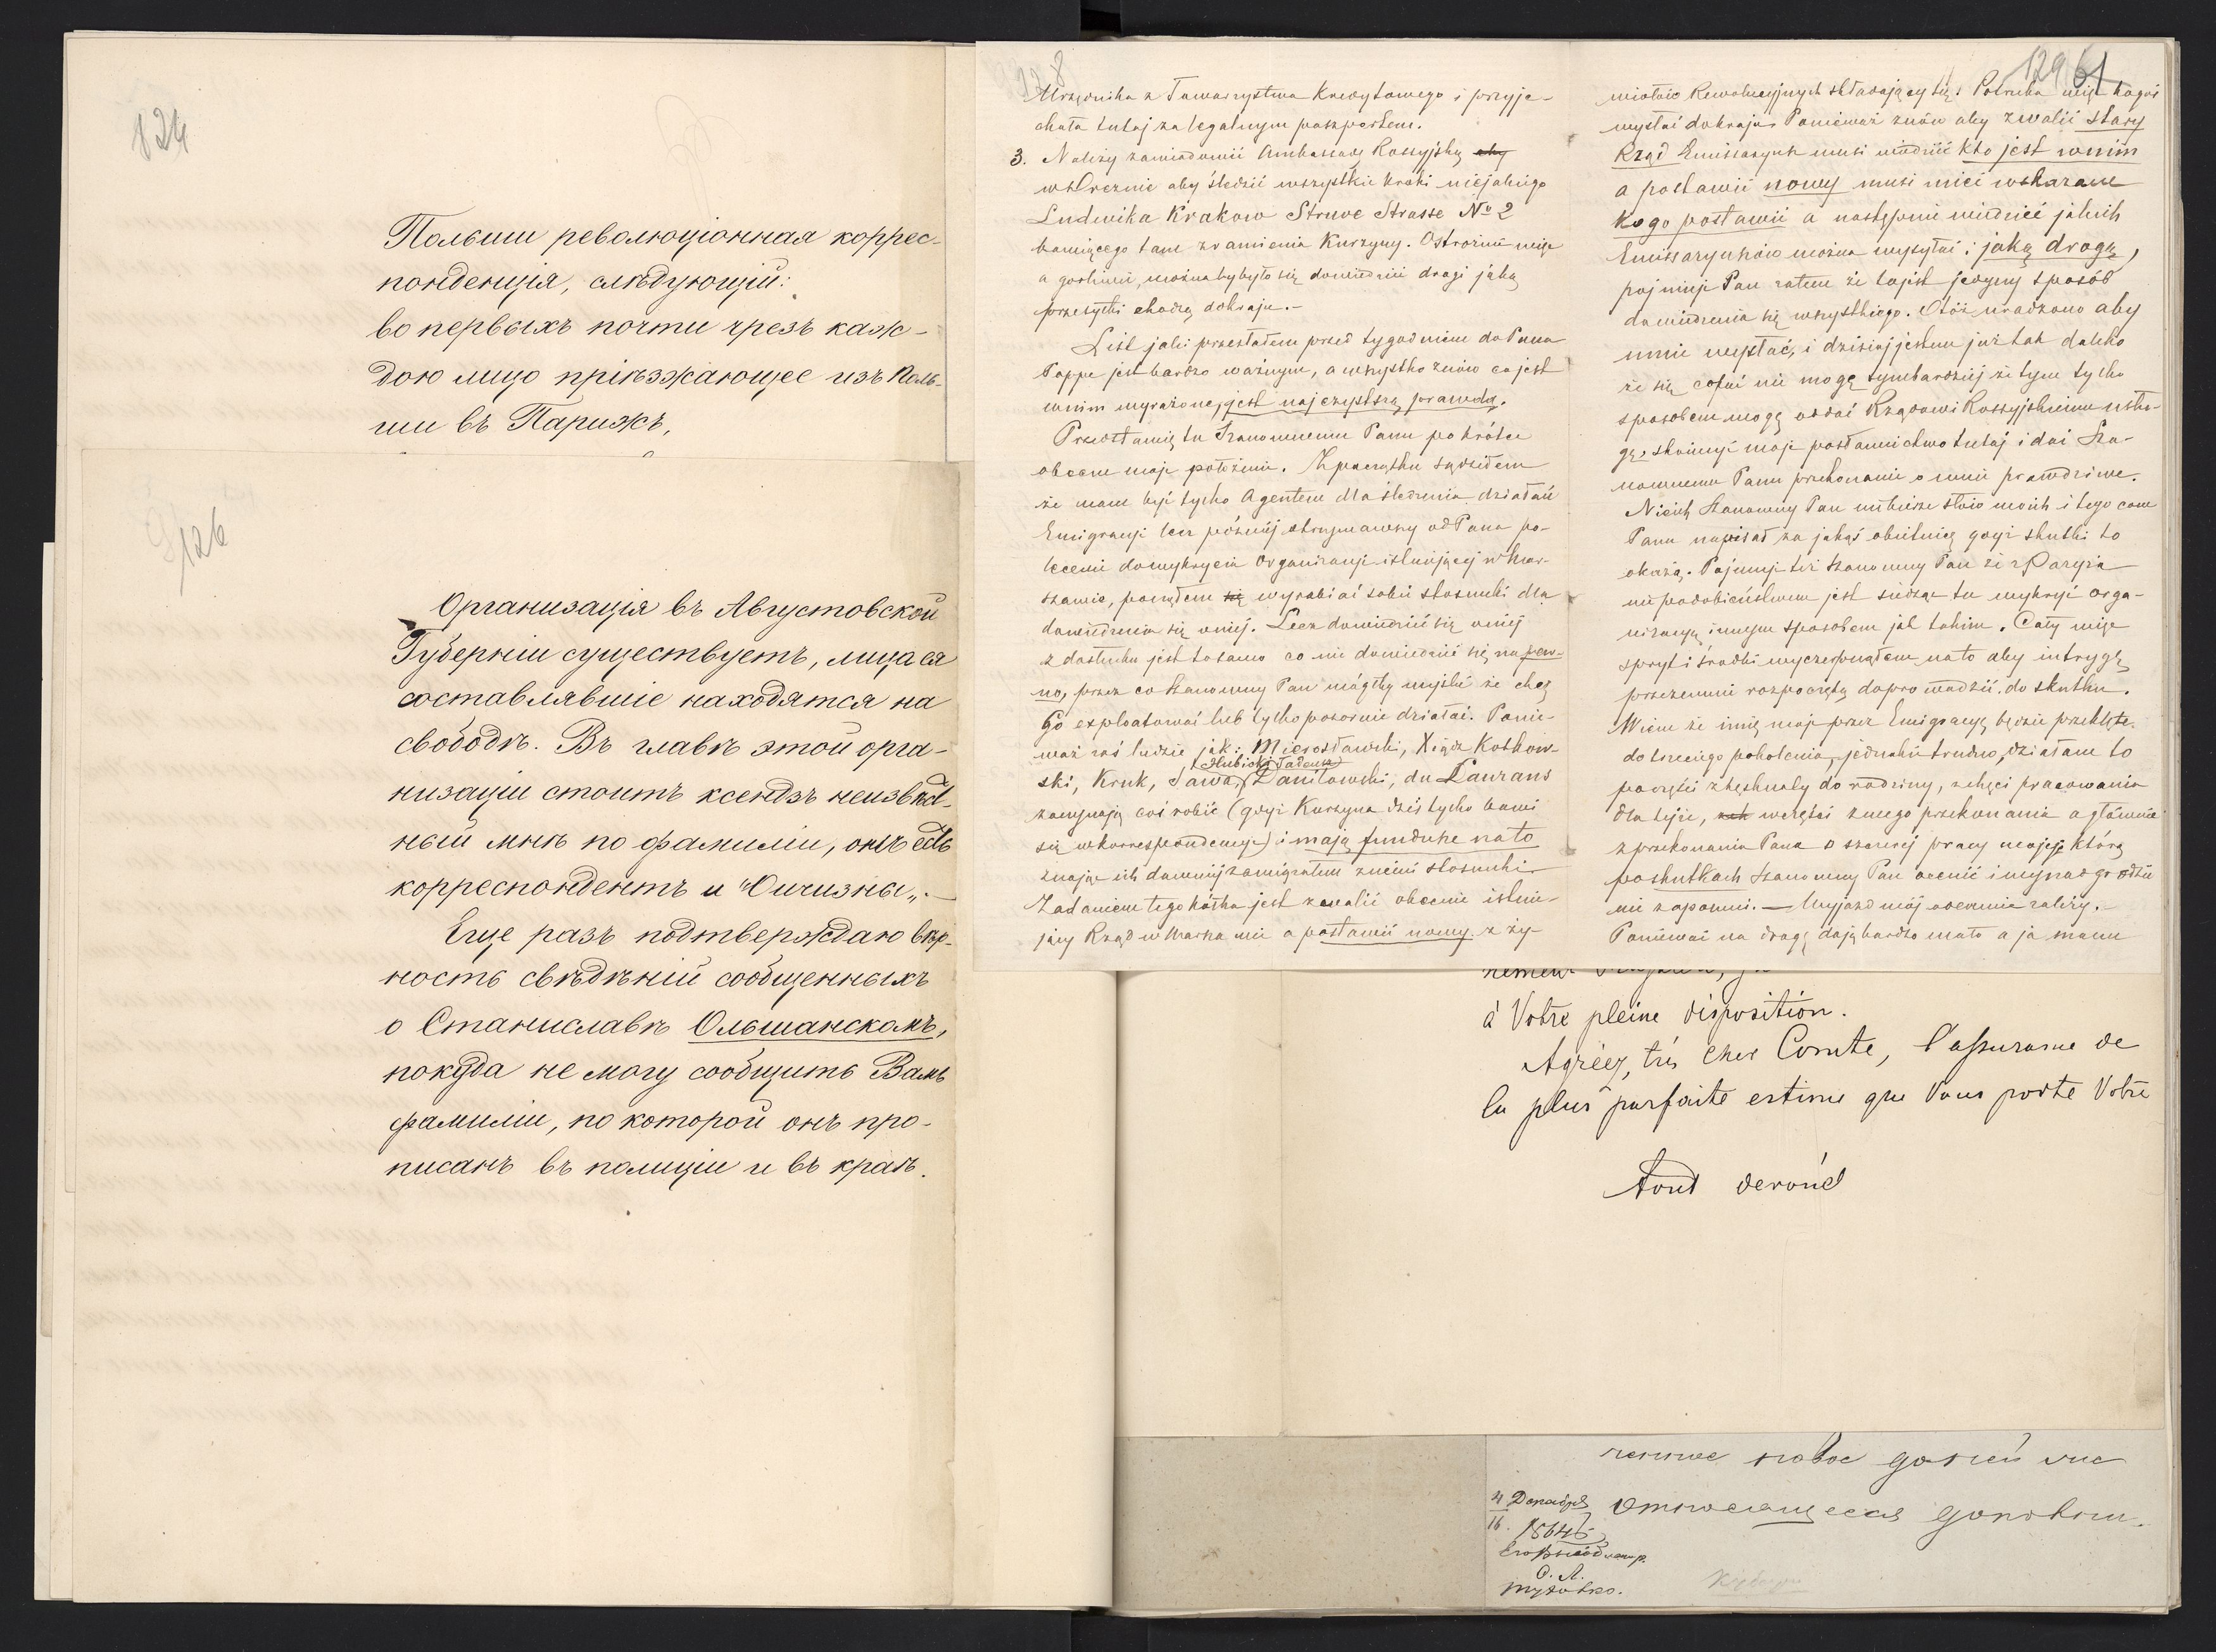 124
Польши революціонная коррес-
понденція, слѣдующій:
во первыхъ почти чрезъ каж-
дою лицо пріѣзжающее изъ Поль-
ши въ Парижъ,
126
Организація въ Августовской
Губерніи существуетъ, лица ея
составлявшіе находятся на
свободѣ. Въ главѣ этой орга-
низаціи стоитъ ксендзъ неизвѣст-
ный мнѣ по фамиліи, онъ есть
корреспондентъ и "Ойчизны„.—
Еще разъ подтверждаю вѣр-
ность свѣдѣній сообщенныхъ
о Станиславѣ Ольшанскомъ,
покуда не могу сообщить Вамъ
фамиліи, по которой онъ про-
писанъ въ полиціи и въ краѣ.
128
Urzędnika z Towarzystwa Kredytowego i przyje-
chała tutaj za legalnym paszportem.
3. Należy zawiadomić Ambassadę Rossyjską aby
w Dreznie aby śledzić wszystkie kroki niejakiego
Ludwika Krakow Struve Strasse № 2
bawiącego tam z ramienia Kurzyny. Ostrożnie więc
a gorliwie, można by było się dowiedzieć drogi jaką
przesyłki chodzą do kraju.—
List jaki przesłałem przed tygodniem do Pana
Pappe jest bardzo ważnym, a wszystko znów co jest
w nim wyrażone, jest najczystszą prawdą.
Przedstawię tu Szanownemu Panu po krótce
obecne moje położenie. Z początku sądziłem
że mam być tylko Agentem dla śledzenia działań
Emigracyi lecz później otrzymawszy od Pana po-
lecenie do wykrycia Organizacyi istniejącej w War-
szawie, począłem się wyrabiać sobie stosunki dla
dowiedzenia się o niej. Lecz dowiedzieć się o niej
z dosłuchu jest to samo co nie dowiedzieć się na pew-
no, przez co Szanowny Pan mógłby myślić że chcę
Go exploatować lub tylko pozornie działać. Ponie-
waż zaś ludzie jak: Mierosławski, Xiądz Kotkow-
ski, Kruk, Sawa, Daniłowski, du Laurans
Hubicki Tadeusz
zaczynają coś robić (gdyż Kurzyna dziś tylko bawi
się w korrespondencye) i mają fundusze na to
znając ich dawniej zawiązałem z niemi stosunki.
Zadaniem tego kółka jest zwalić obecnie istnie-
jący Rząd w Warszawie a postawić nowy z ży-
129 61
wiołów Rewolucyjnych składający się. Potrzeba więc kogoś
wysłać do kraju. Ponieważ znów aby zwalić stary
Rząd Emissaryusz musi wiedzieć kto jest w nim
a postawić nowy musi mieć wskazane
kogo postawić a następnie wiedzieć jakich
Emissaryuszów można wysyłać i jaką drogą,
pojmuje Pan zatem że to jest jedyny sposób
dowiedzenia się wszystkiego. Otóż uradzono aby
mnie wysłać, i dzisiaj jestem już tak daleko
że się cofnąć nie mogę tymbardziej że tym tylko
sposobem mogę oddać Rządowi Rossyjskiemu usłu-
gę, skończyć moje posłannictwo tutaj i dać Sza-
nownemu Panu przekonanie o mnie prawdziwe.
Niech Szanowny Pan nie bierze słów moich i tego com
Panu napisał za jakąś obietnicę gdyż skutki to
okażą. Pojmuje też Szanowny Pan że z Paryża
niepodobieństwem jest siedząc tu wykryć orga-
nizacyę innym sposobem jak takim. Cały więc
spryt i środki wyczerpnąłem na to aby intrygę
przezemnie rozpoczętą doprowadzić do skutku.
Wiem że imię moje przez Emigracyę będzie przeklęte
do trzeciego pokolenia, jednakże trudno, działam to
po części z tęsknoty do rodziny, z chęci pracowania
dla tejże, w części z mego przekonania a głównie
z przekonania Pana o szczerej pracy mojej którą
po skutkach Szanowny Pan ocenić i wynagrodzić
nie zapomni.— Wyjazd mój odemnie zależy.—
Ponieważ na drogę dają bardzo mało a ja mam
à Votre pleine disposition.
Agréez, très cher Comte, l'assurance de
la plus parfaite estime que Vous porte Votre
tout devoué
4 Декабря
16. 1864